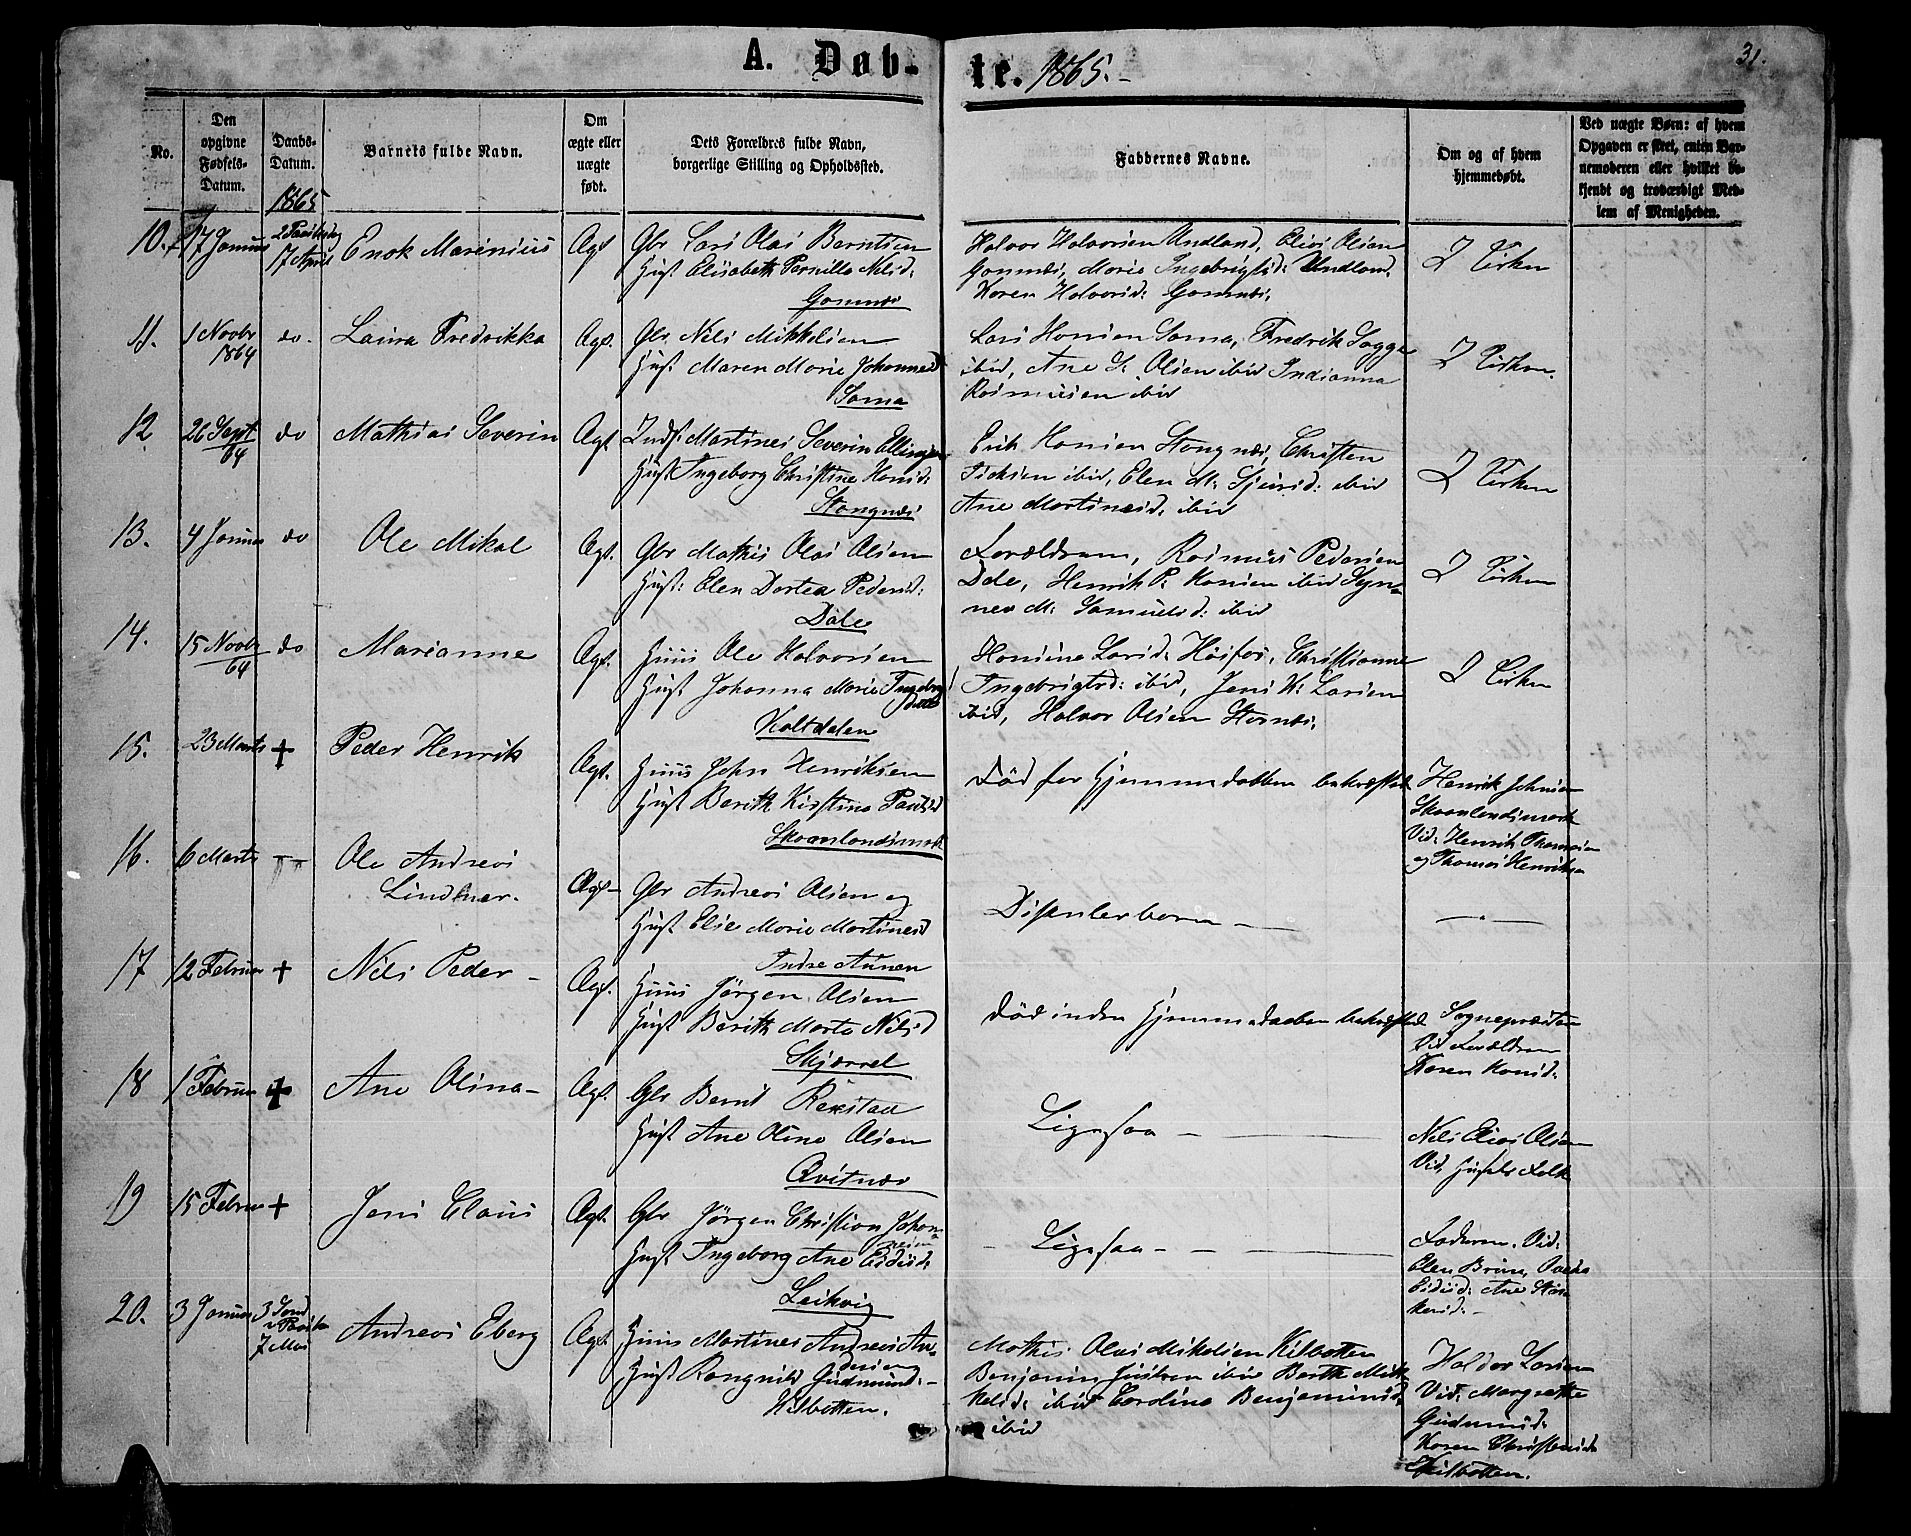 A. Døb-
te. 1865.-
31.
No.
Den
opgivne
Fødsels-
Datum.
Daabs-
Datum.
1865
Barnets fulde Navn.
Om
ægte eller
uægte
født.
Dets Forældres fulde Navn,
borgerlige Stilling og Opholdssted.
Faddernes Navne.
Om og af hvem
hjemmedøbt.
Ved uægte Børn: af hvem
Opgaven er skeet, enten Bar-
nemoderen eller hvilket be-
kjendt og troværdigt Med-
lem af Menigheden.
10.
17 Januar
17 April
Enok Marinius
Ægt
Gbr Lars Olai Berntsen
Hust Elisabeth Pernille Nilsd:
Halvor Halvorsen Undland, Elias Olsen
Marie Ingebrigtsd: Undland
Karen Halvorsd:
I Kirken
11.
1 Novbr
1864
do.
Laura Fredrikka
Ægt.
Gbr. Nils Mikkelsen
Hust Maren Marie Johannesd
Sama
Lars Hansen Sama, Fredrik
ibid, Ane Olsen ibid Indianna
Rasmusen ibid
I Kirken.
12
26 Sept
64
do
Mathias Severin
Ægt
Inds. Martines Severin Ellingsen
Hust Ingeborg Christine Hansd:
Stangnæs
Erik Hansen Stangnæs, Christen
ibid, Elen M: Sjursd: ibid
Ane Martinesd: ibid
I Kirken
13.
4 Januar
do
Ole Mikal
Ægt.
Gbr Mathis Olai Olsen
Hust: Elen Dortea Pedersd:
Dale
Forældrene, Rasmus Pedersen
Dale, Henrik P: Hansen ibid Syn-
nev M: Samuelsd: ibid
I Kirken
14.
15 Novbr
64
do
Marianne
Ægt.
Huus Ole Halvorsen
Hust Johanna Marie Ingebrigt
datt
Kaltdalen
Hansine Larsd: Høifos, Christianne
Ingebrigtsd: ibid, Jens K: Larsen
ibid, Halvor Olsen
I Kirken
15.
23 Marts
+
Peder Henrik
Ægt.
Huus John Henriksen
Hust Berith Kirstine Paulsd
Skaanlandsmark
Død før Hjemmedaaben bekræftet
Henrik Johnsen
Skaanlandsmark
Vid: Henrik Thomasen
og Thomas Henriksen
16.
6 Marts
Ole Andreas
Lindtner.
Ægt-
Gbr Andreas Olsen og
Hust Elise Marie Martinesd
Indre Aunen
Disenterbarn -
17
12 Februar
+
Nils Peder -
Ægt.
Huus Jørgen Olsen
Hust Berith Marta Nilsd
Skjærvel
Død inden Hjemmedaaben bekræftet
Sognepræsten
Vid Forældrene
Karen Hansd:
18
1 Februar
+
Ane Olina -
Ægt.
Gbr Bernt Rekstad
Hust Ane Oline Olsen
Qvitnes
Ligesaa -
Nils Elias Olsen
Vid,
19
15 Februar
+
Jens Claus
Ægt.
Gbr Jørgen Christian Johan-
nesen
Hust Ingeborg Ane Eidisd:
Leikvig
- Ligesaa -
Faderen. Vid:
Elen Brun,
Eidisd: Ane
20.
3 Januar
7 Mai
Andreas Eberg
Ægt.
Huus Martines Andreas An-
dersen
Hust Rangnild Gudmunds-
Kilbotten.
Mathis Olai Mikelsen Kilbotten
Benjamin ibid Berith Mik-
kelsd: ibid Caroline Benjaminsd
ibid
Haldor Larsen
Vid: Margrethe
Gudmunds:
Karen Christensd:
Kilbotten.